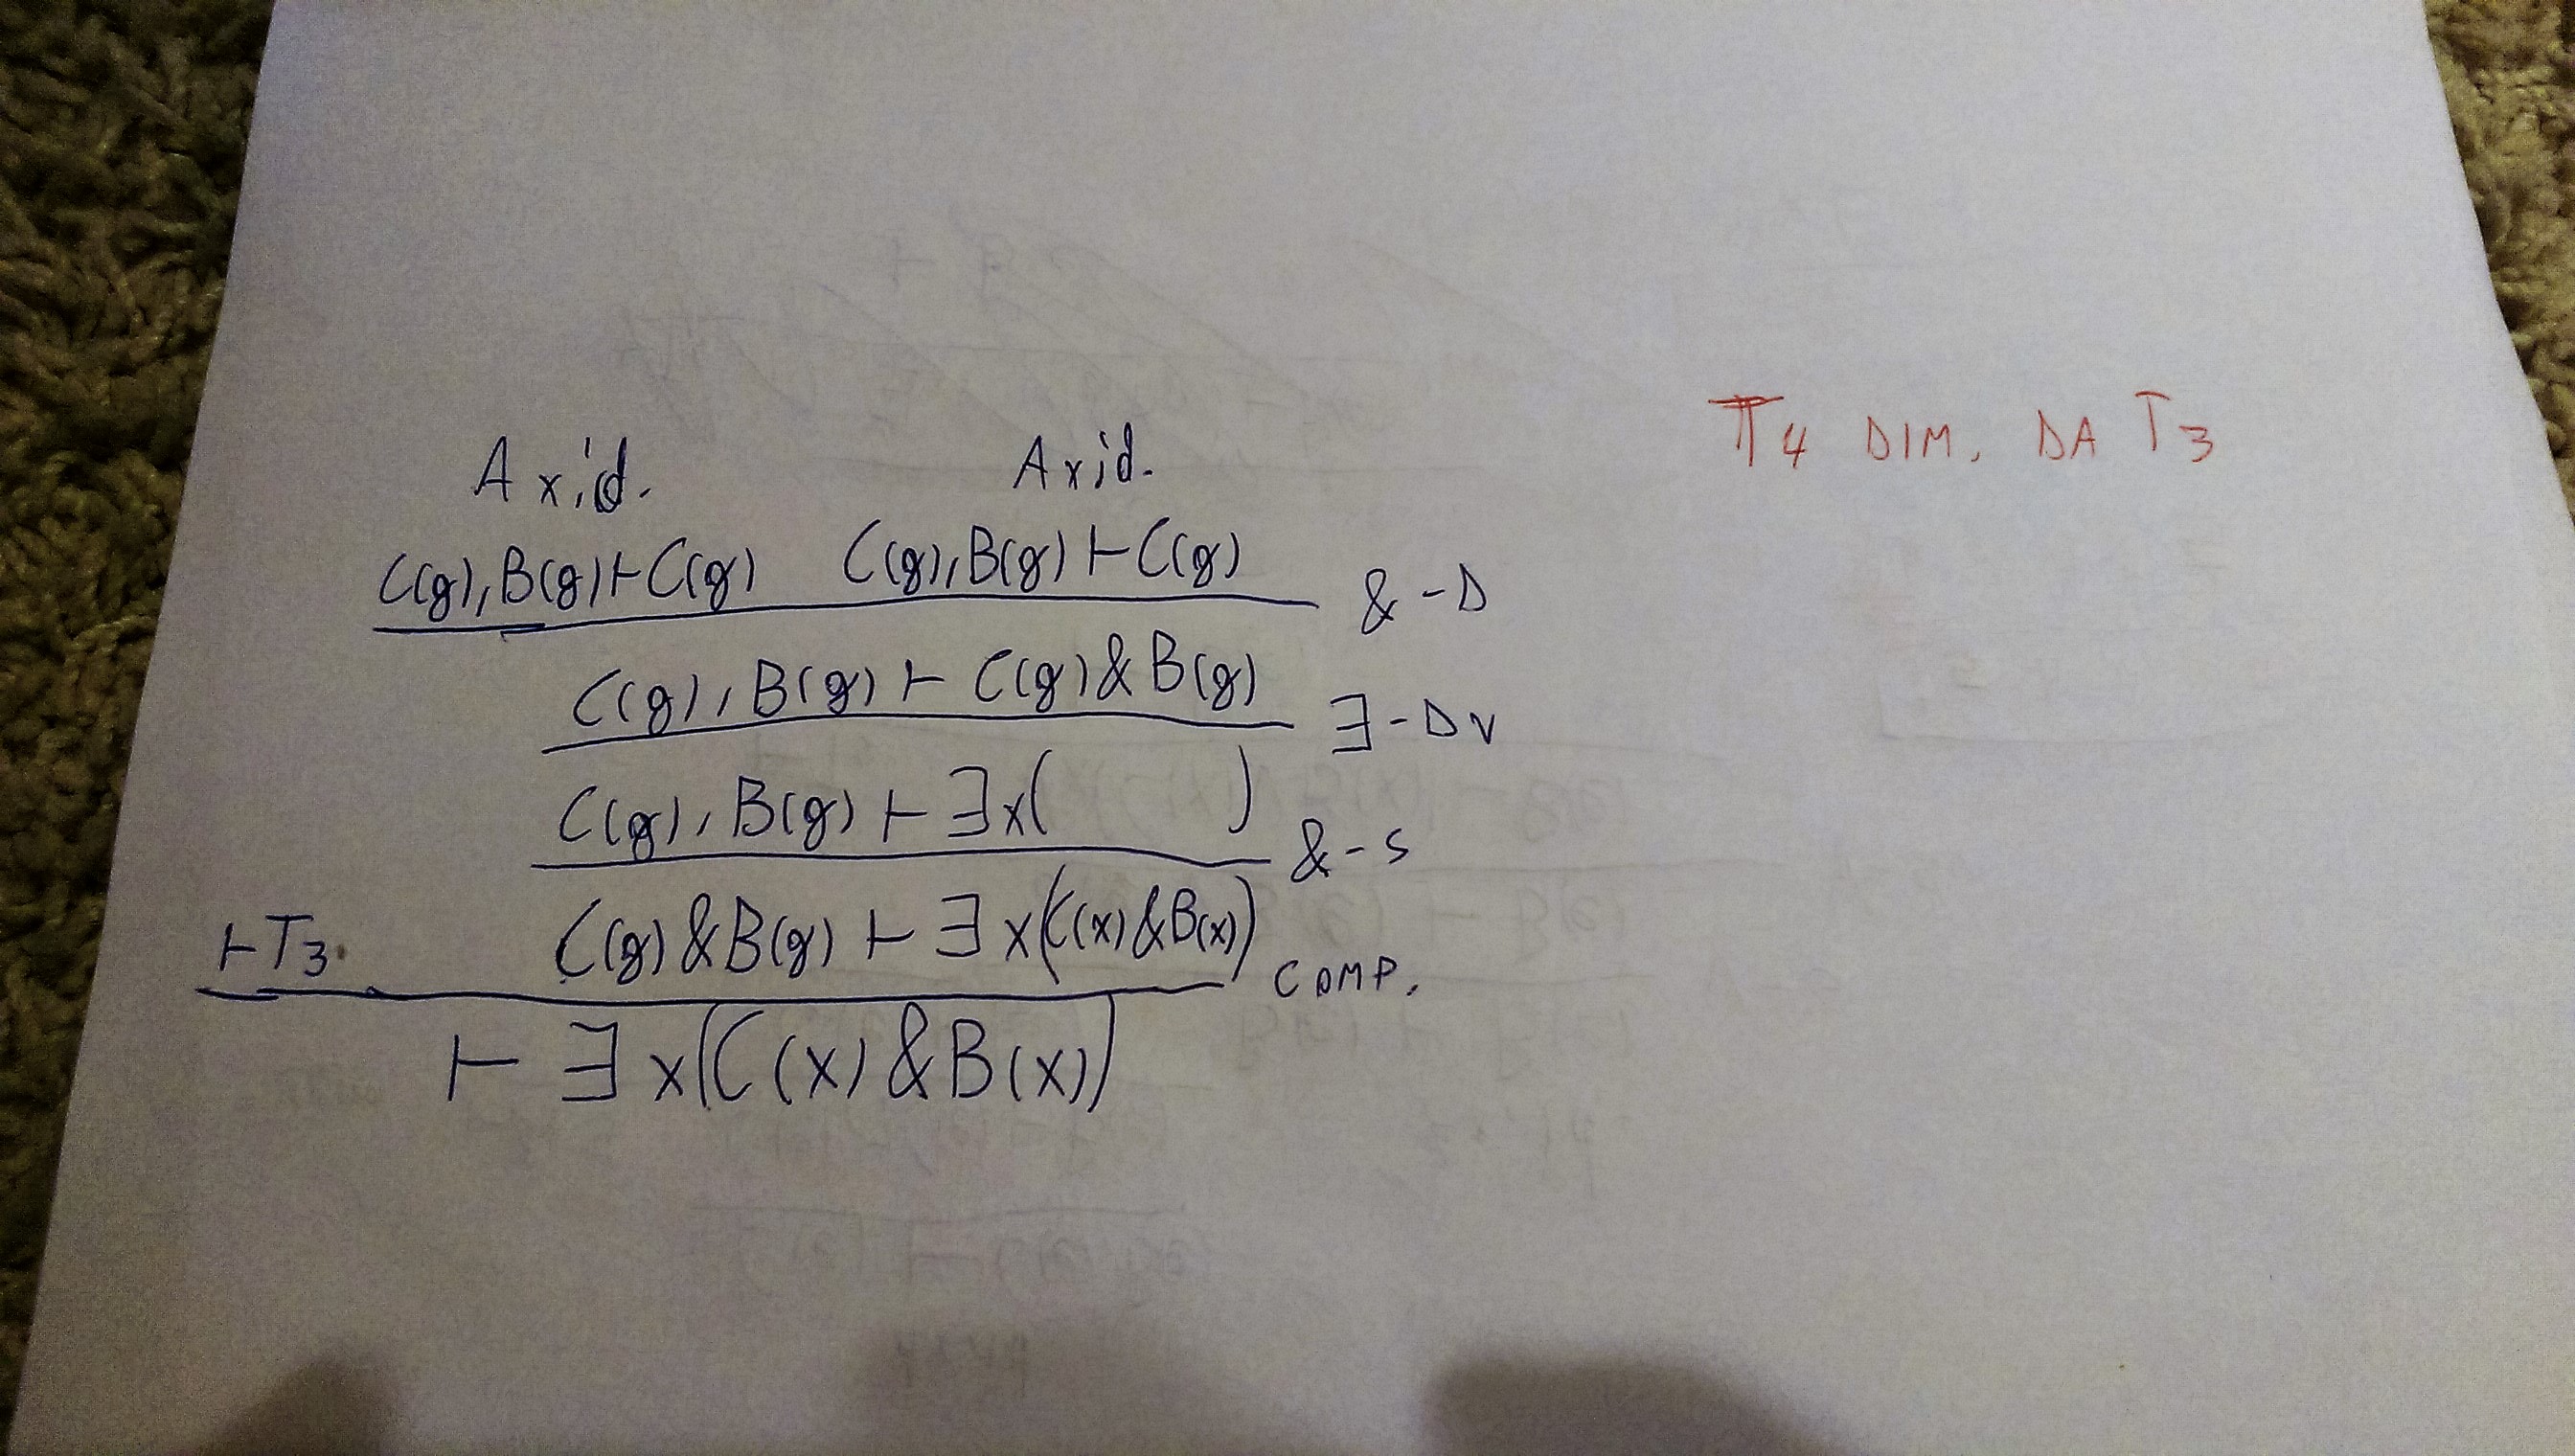 π4 DIM. DA T3
Axid. Axid.
C(g),B(g)⊢C(g) C(g),B(g)⊢C(g) &-D
C(g),B(g)⊢C(g)&B(g) ∃-Dv
C(g),B(g)⊢∃x( ) &-S
⊢T3. C(g)&B(g)⊢∃x(C(x)&B(x)) COMP.
⊢∃x(C(x)&B(x))